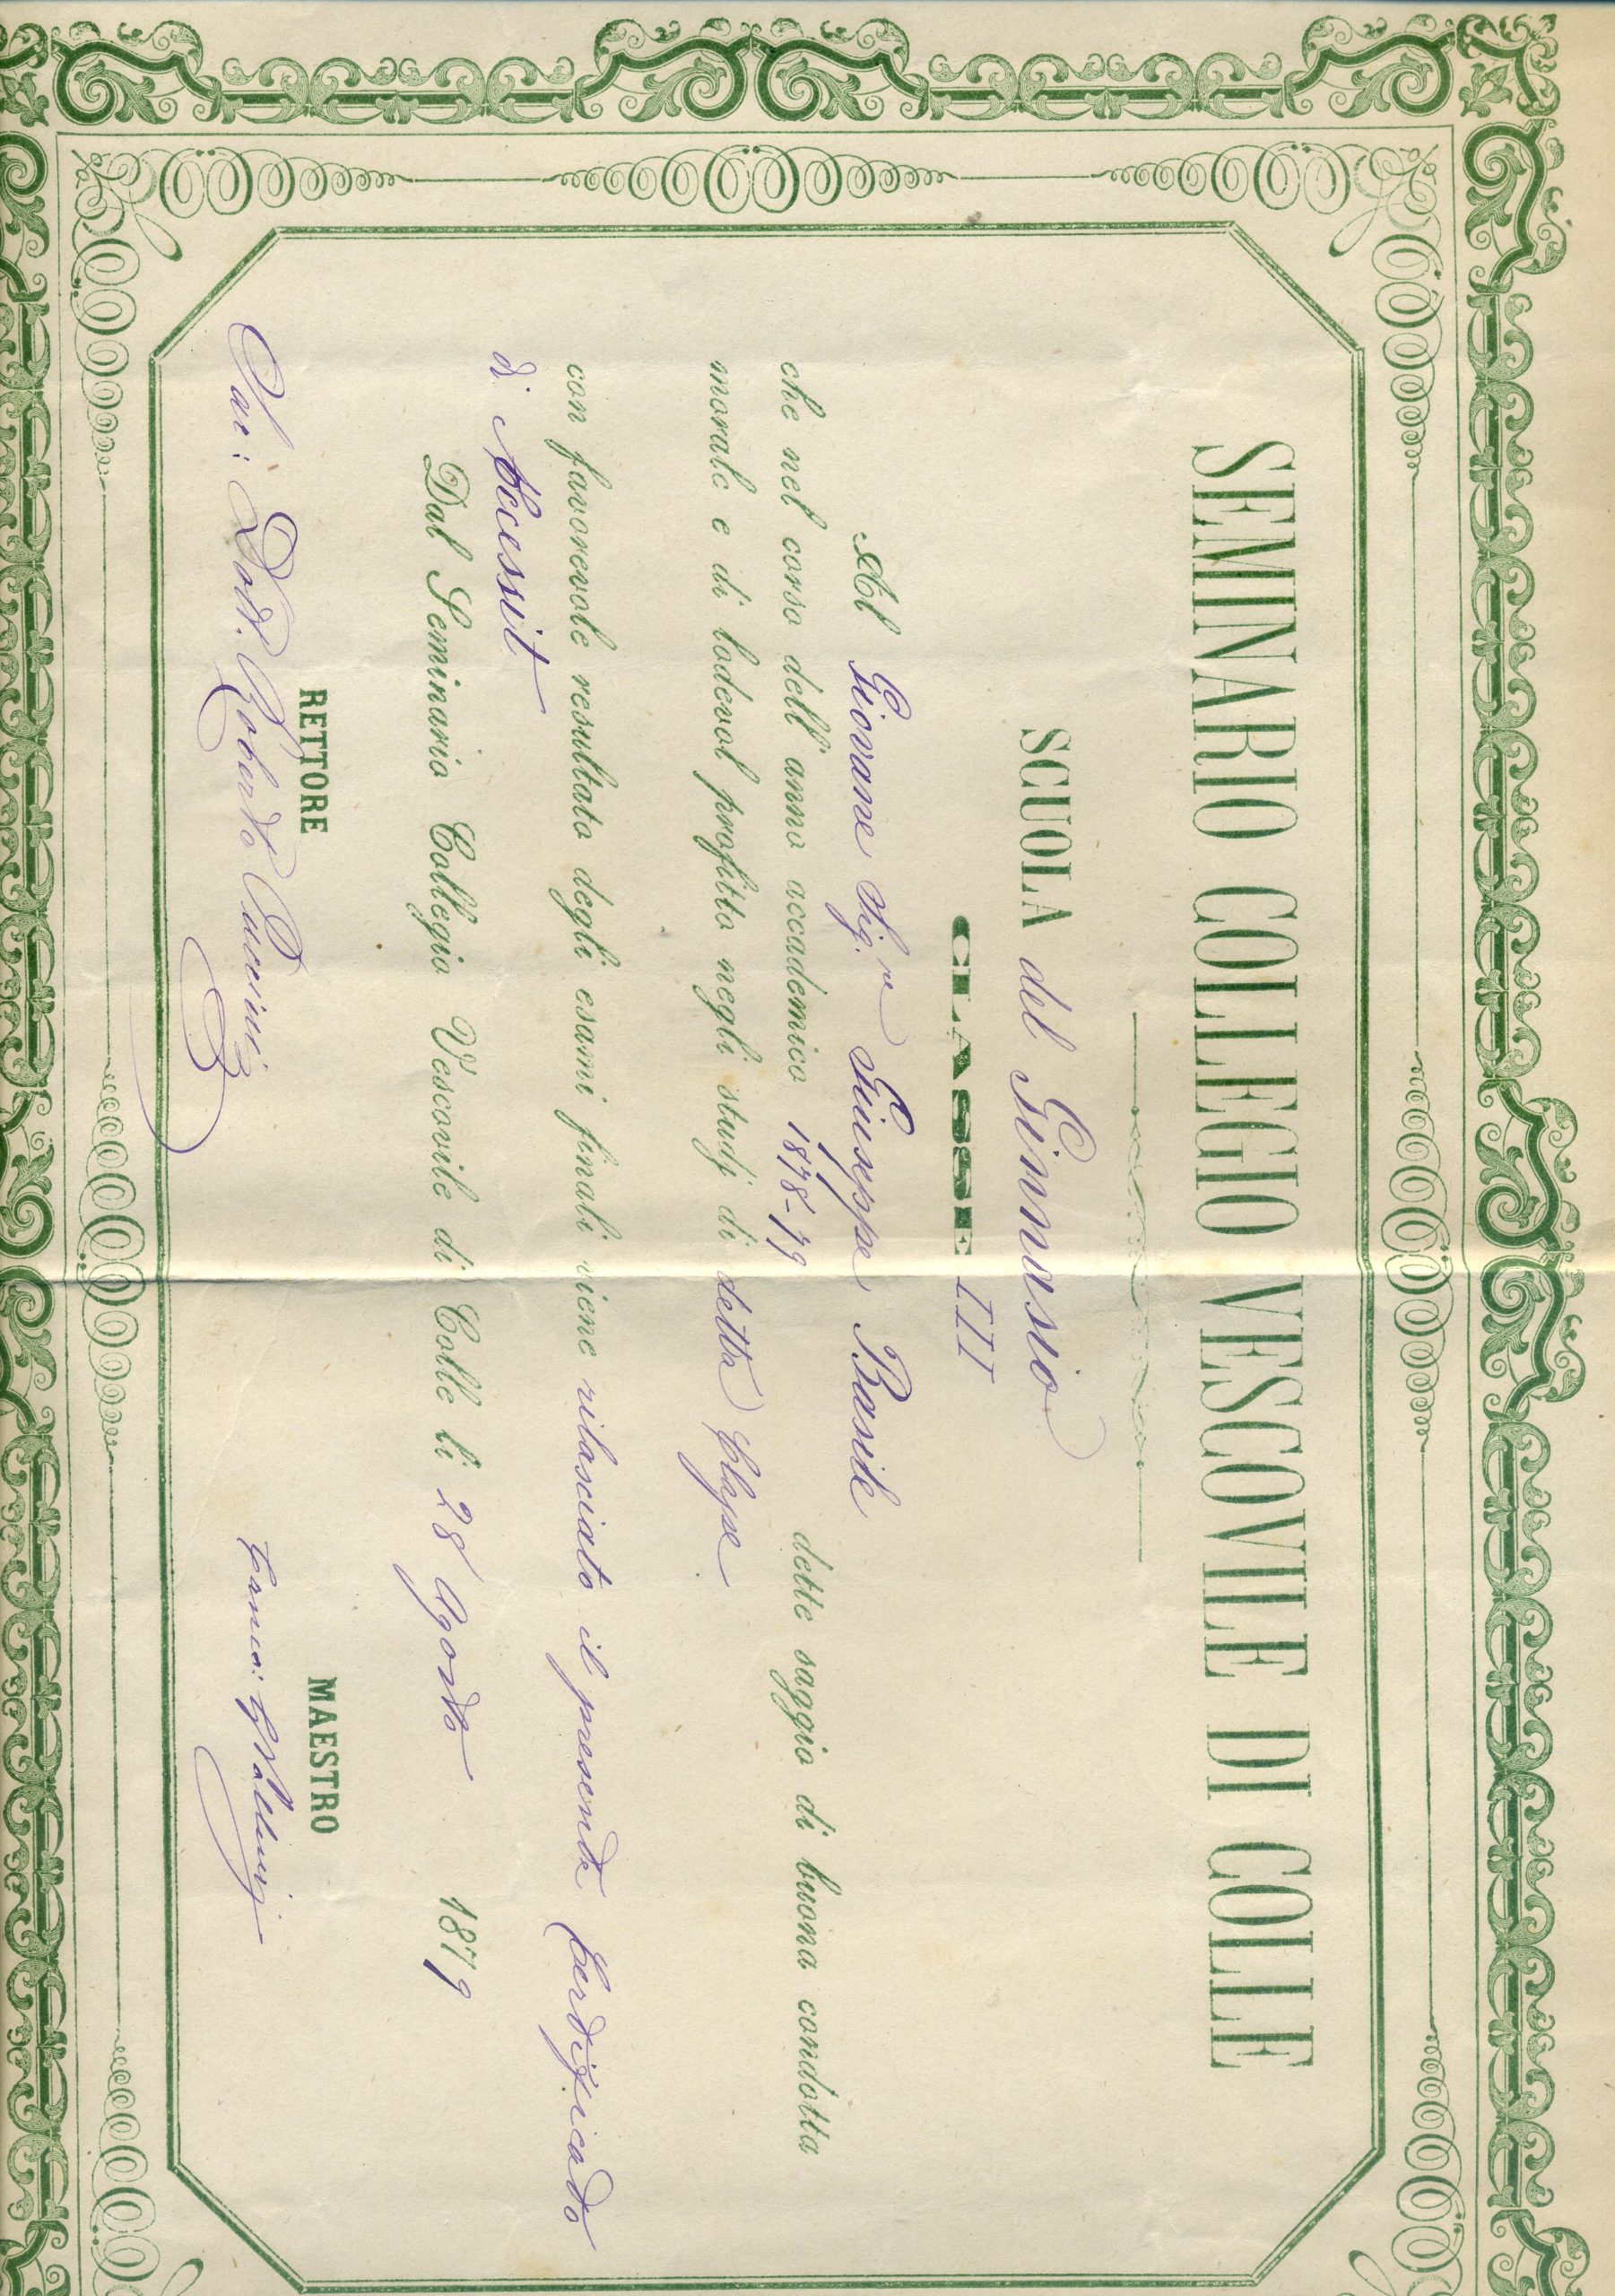 SEMINARIO COLLEGIO VESCOVILE DI COLLE
SCUOLA del Ginnasio
CLASSE III
Al Giovane Sig.re Giuseppe Basile
che nel corso dell' anno accademico 1878-79 dette saggio di buona condotta
morale e di lodevol profitto negli studj di detta Classe
con favorevole resultato degli esami finali viene rilasciato il presente Certificato
di Accessit
Dal Seminario Collegio Vescovile di Colle li 28 Agosto 1879
RETTORE MAESTRO
Dott. Roberto